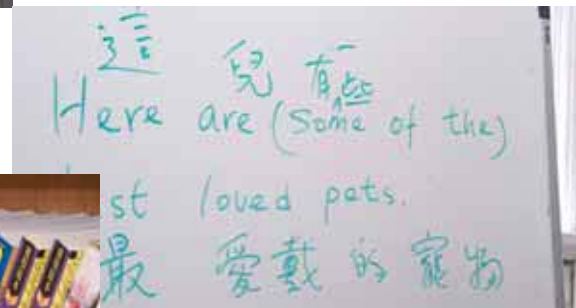 這 兒 有一些
Here are (Some of the)
st loved pets.
最 愛戴 的 寵物